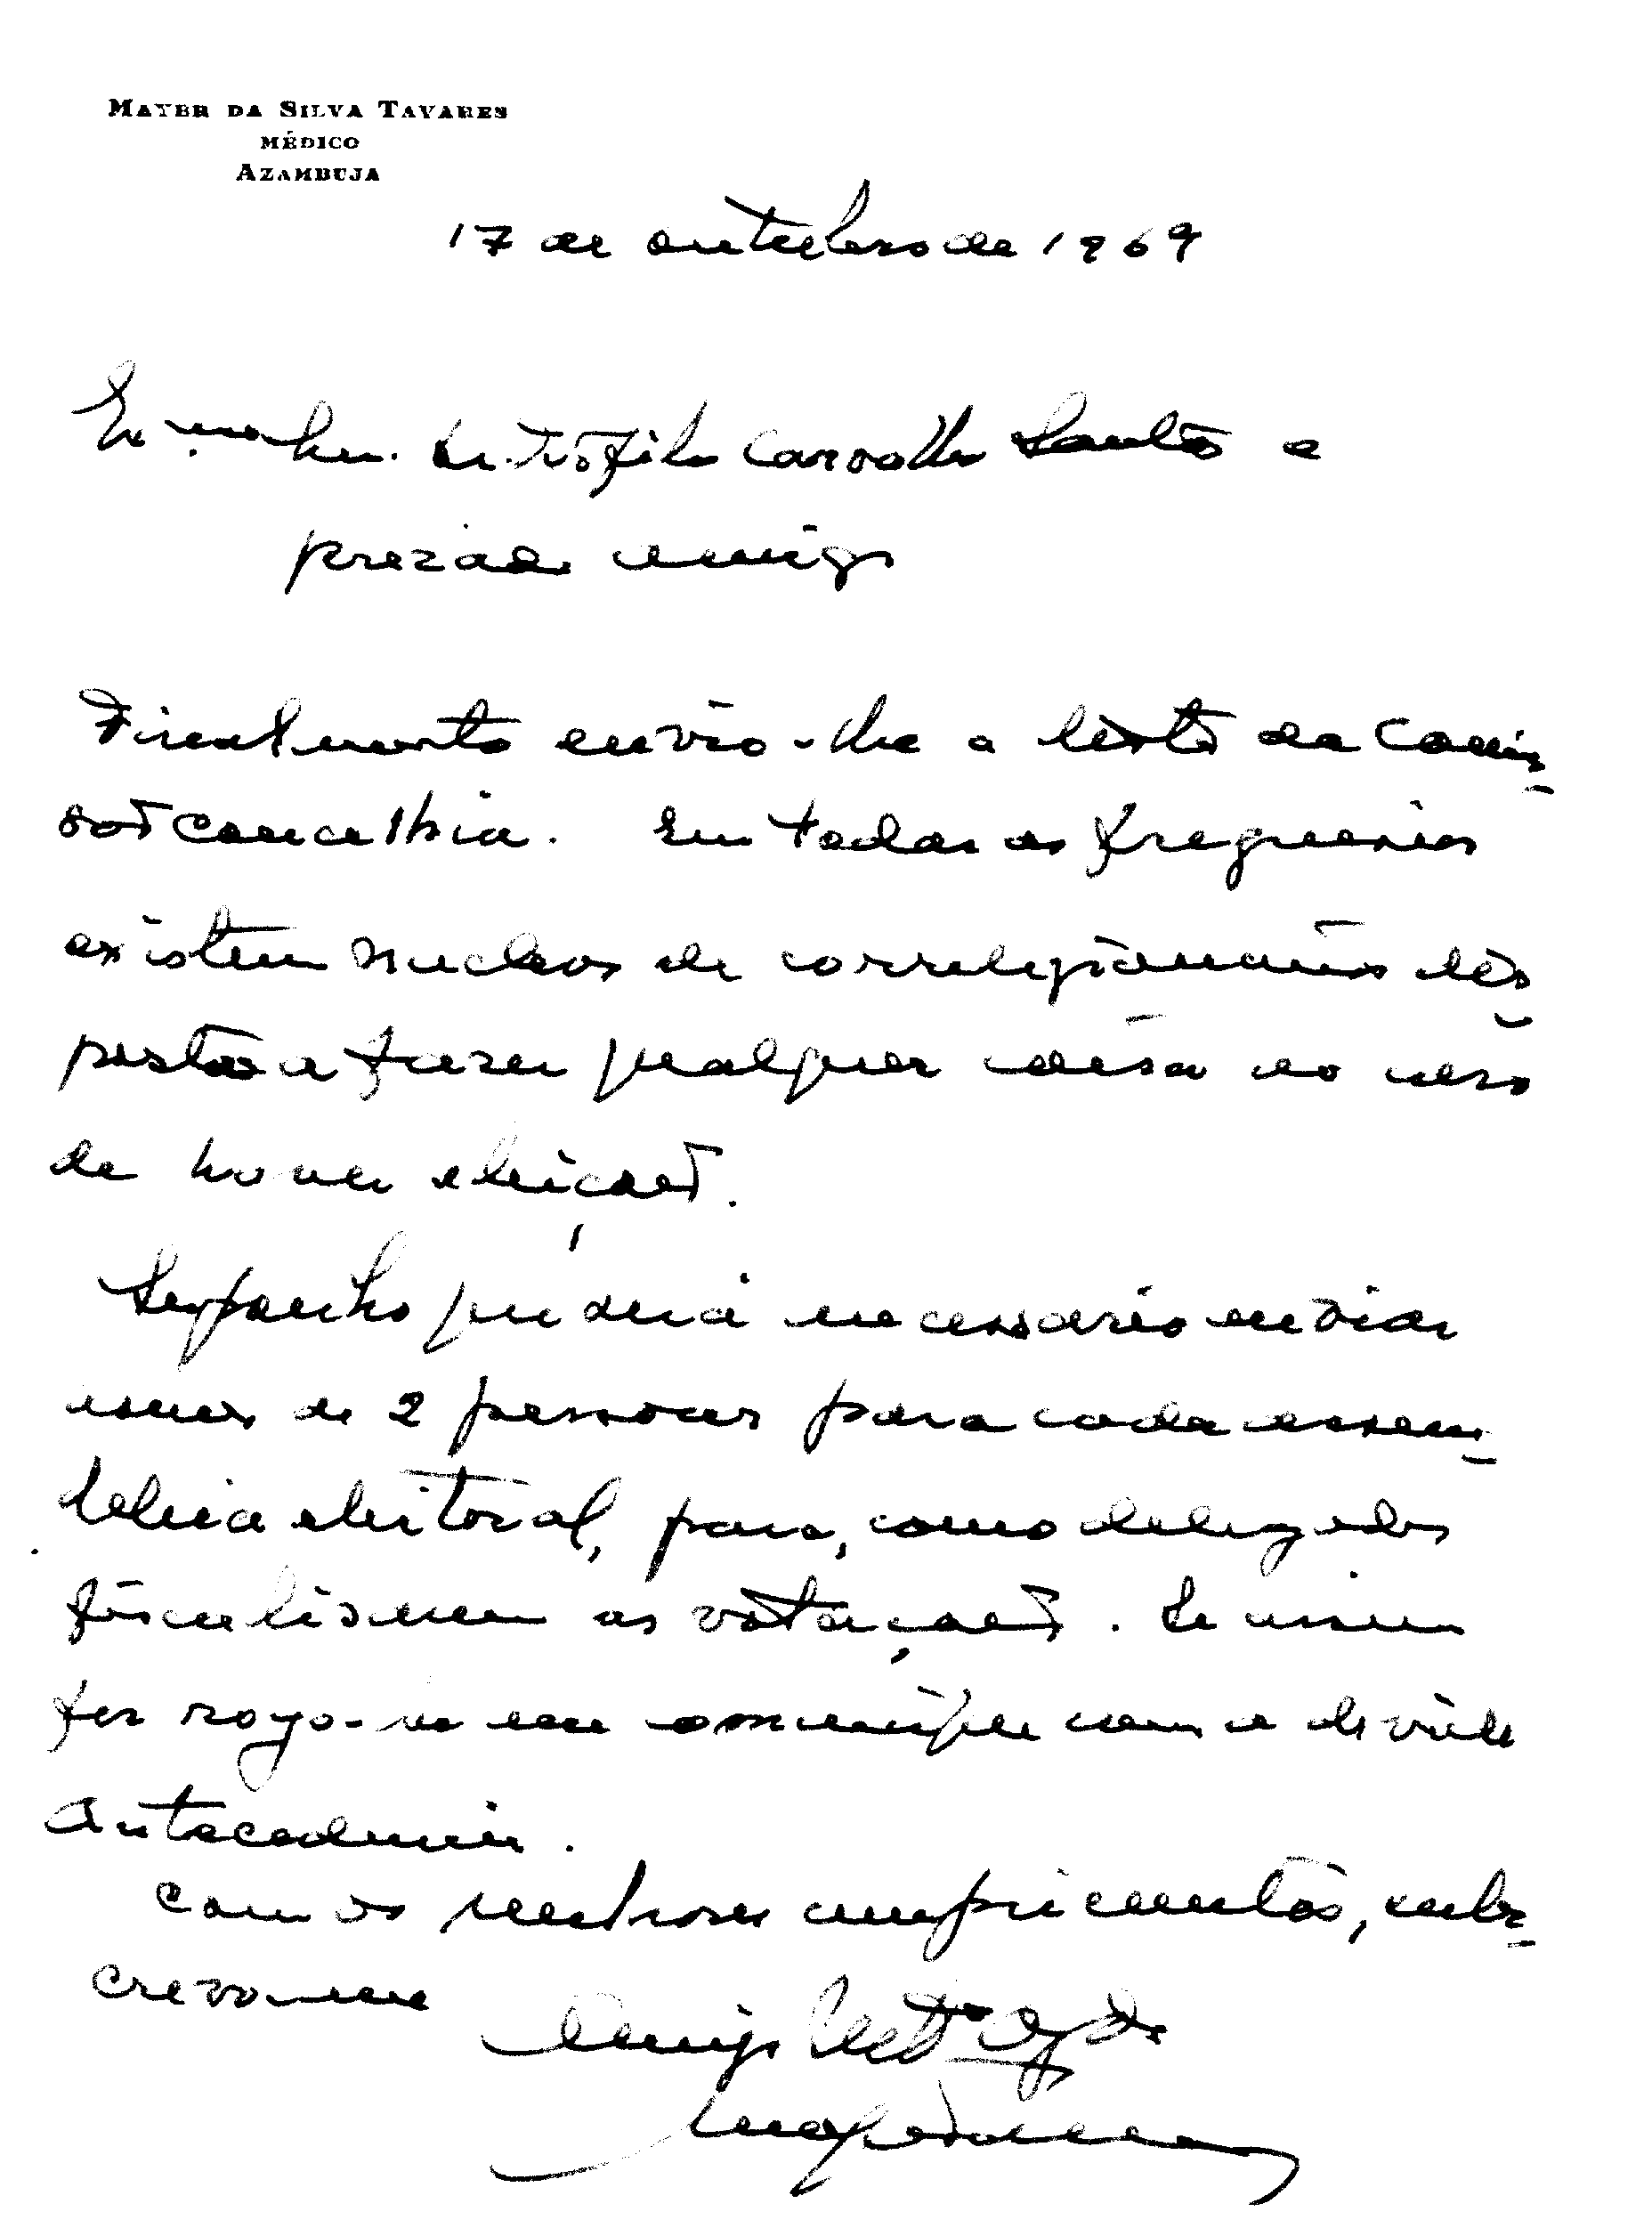 MAYER DA SILVA TAVARES
MÉDICO
AZAMBUJA
17 de outubro de 1969
Exmo. Sen. Dr. Teófilo Carvalho Santos e
prezado amigo
Finalmente envio-lhe a lista da Comis-
são concelhia. Em todas as freguesias
existem nucleos de correlegionários dis-
postos a fazer qualquer coisa no caso
de haver eleições.
Suponho que será necessário enviar
mais de 2 pessoas para cada assem-
bleia eleitoral, para, como delegados
fiscalisarem as votações. Se assim
for rogo-lhe me comunique com a devida
antecedencia.
Com os melhores cumprimentos, subs-
crevo-me
Amigo